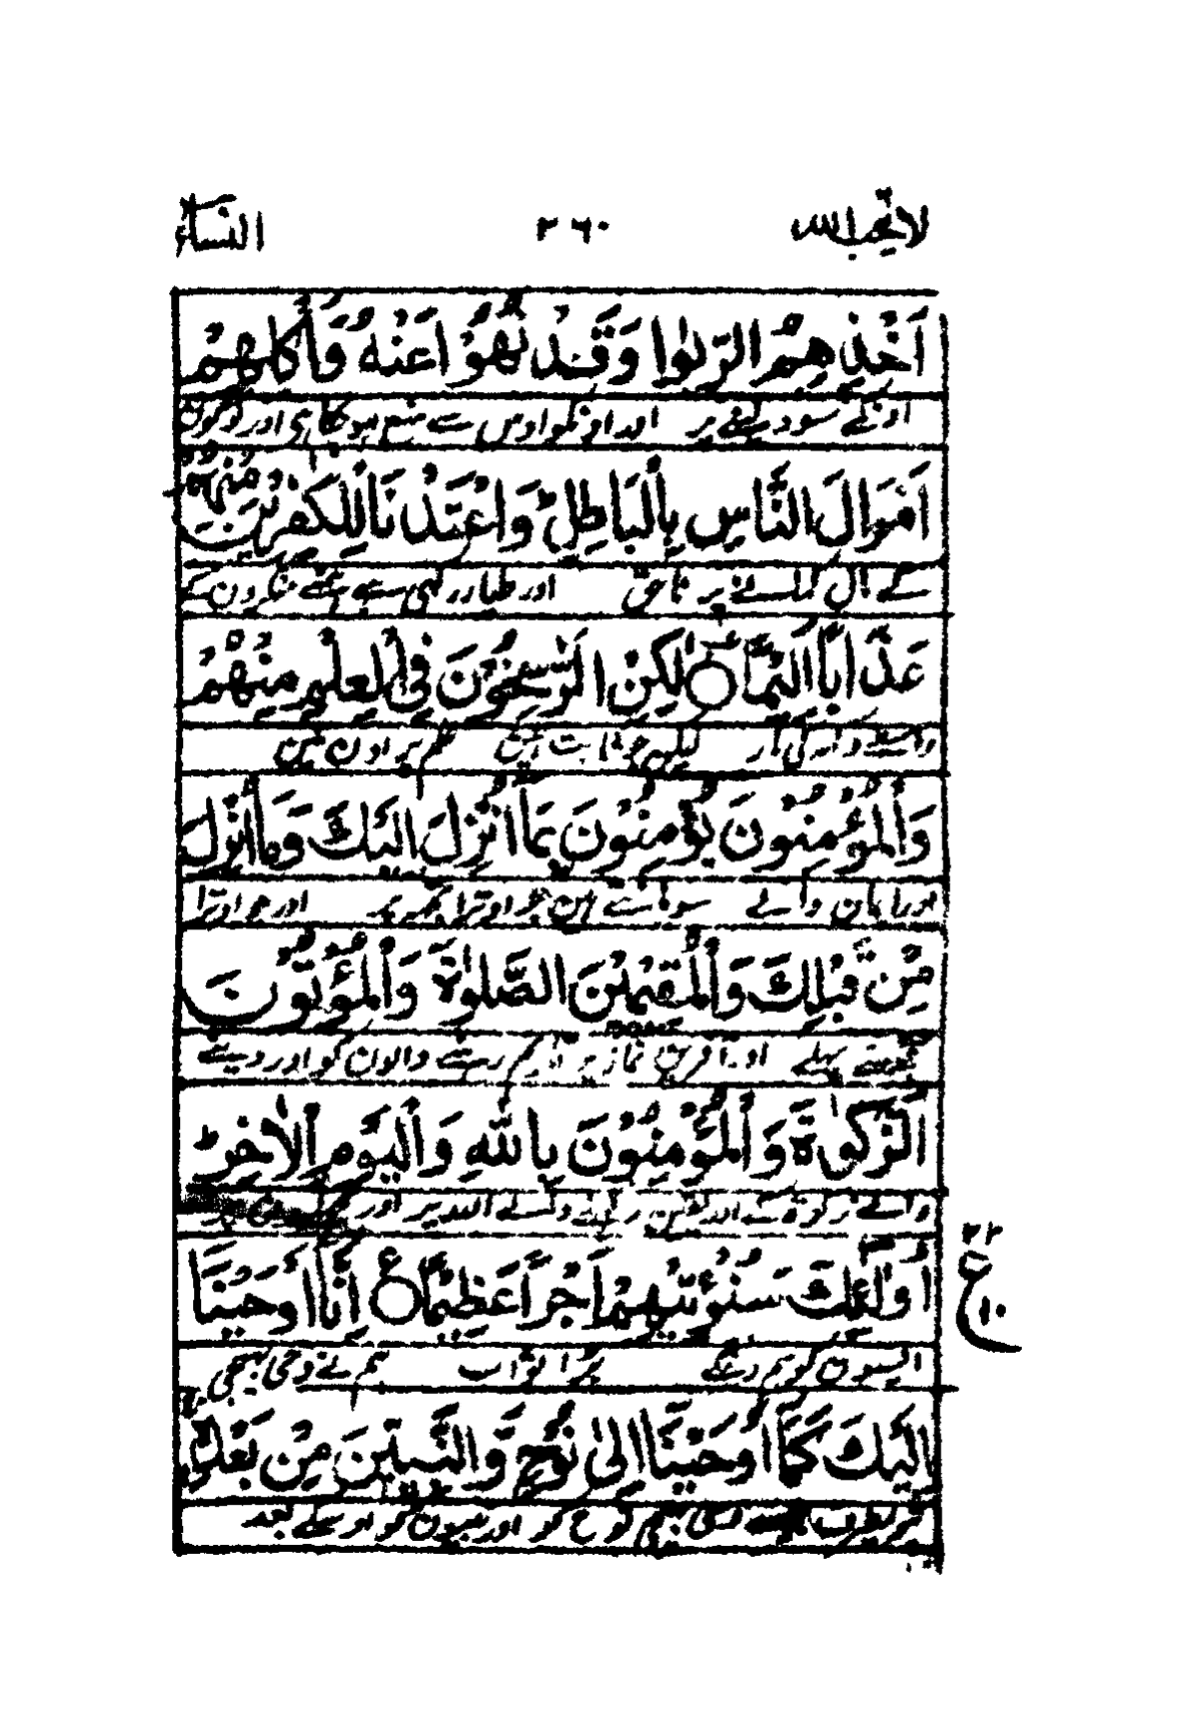 لا یحب اللہ ۲۶۰ النساء
اَخْذِهِمُ الرِّبٰوا وَقَدْ نُهُوْا عَنْهُ وَاَكْلِهِمْ
اونکے سود لینے پر اور اونکو اوس سے منع ہو چکا ہی اور لوگون
اَمْوَالَ النَّاسِ بِالْبَاطِلِ ؕ وَاَعْتَدْنَا لِلْكٰفِرِيْنَ مِنْهُمْ
کے مال کہانے پر ناحق اور طیار رکہی ہے ہمنے منکرون کے
عَذَابًا اَلِيْمًا ○ لٰكِنِ الرّٰسِخُوْنَ فِي الْعِلْمِ مِنْهُمْ
واسطے دکہ کی مار لیکن جو ثابت ہین علم پر اون مین
وَالْمُؤْمِنُوْنَ يُؤْمِنُوْنَ بِمَا اُنْزِلَ اِلَيْكَ وَمَا اُنْزِلَ
اور ایمان والے سو مانتے ہین جو اوترا تجھ پر اور جو اوترا
مِنْ قَبْلِكَ وَالْمُقِيْمِيْنَ الصَّلٰوةَ وَالْمُؤْتُوْنَ
تجھسے پہلے اور آفرین نماز پر قائم رہنے والون کو اور دینے
الزَّكٰوةَ وَالْمُؤْمِنُوْنَ بِاللّٰهِ وَالْيَوْمِ الْاٰخِرِ ؕ
والے زکوة کے اور یقین رکہنے والے اللہ پر اور
اُولٰٓئِكَ سَنُؤْتِيْهِمْ اَجْرًا عَظِيْمًا ○ اِنَّا اَوْحَيْنَا
۲۲ ع ۱۰
ایسون کو ہم دینگے بڑا ثواب ہم نے وحی بہیجی
اِلَيْكَ كَمَا اَوْحَيْنَا اِلٰى نُوْحٍ وَّالنَّبِيّٖنَ مِنْ بَعْدِهٖ
تیری طرف جیسے وحی بہیجی نوح کو اور نبیون کو اوسکے بعد